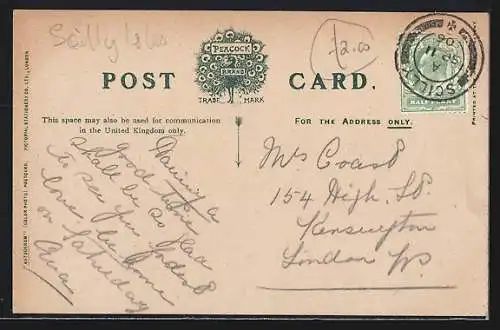 Scilly Isles
£2.00
PEACOCK
BRAND
TRADE MARK
POST CARD.
This space may also be used for communication
in the United Kingdom only.
FOR THE ADDRESS ONLY.
SCILLY
HALFPENNY
Having a
good time
shall be so glad
to see you
love
home
on Saturday
Mrs Coast
154 High St
Kensington
London
"AUTOCHROM" (COLOR PHOTO) POSTCARD. PICTORIAL STATIONERY CO. LTD., LONDON.
PRINTED AT